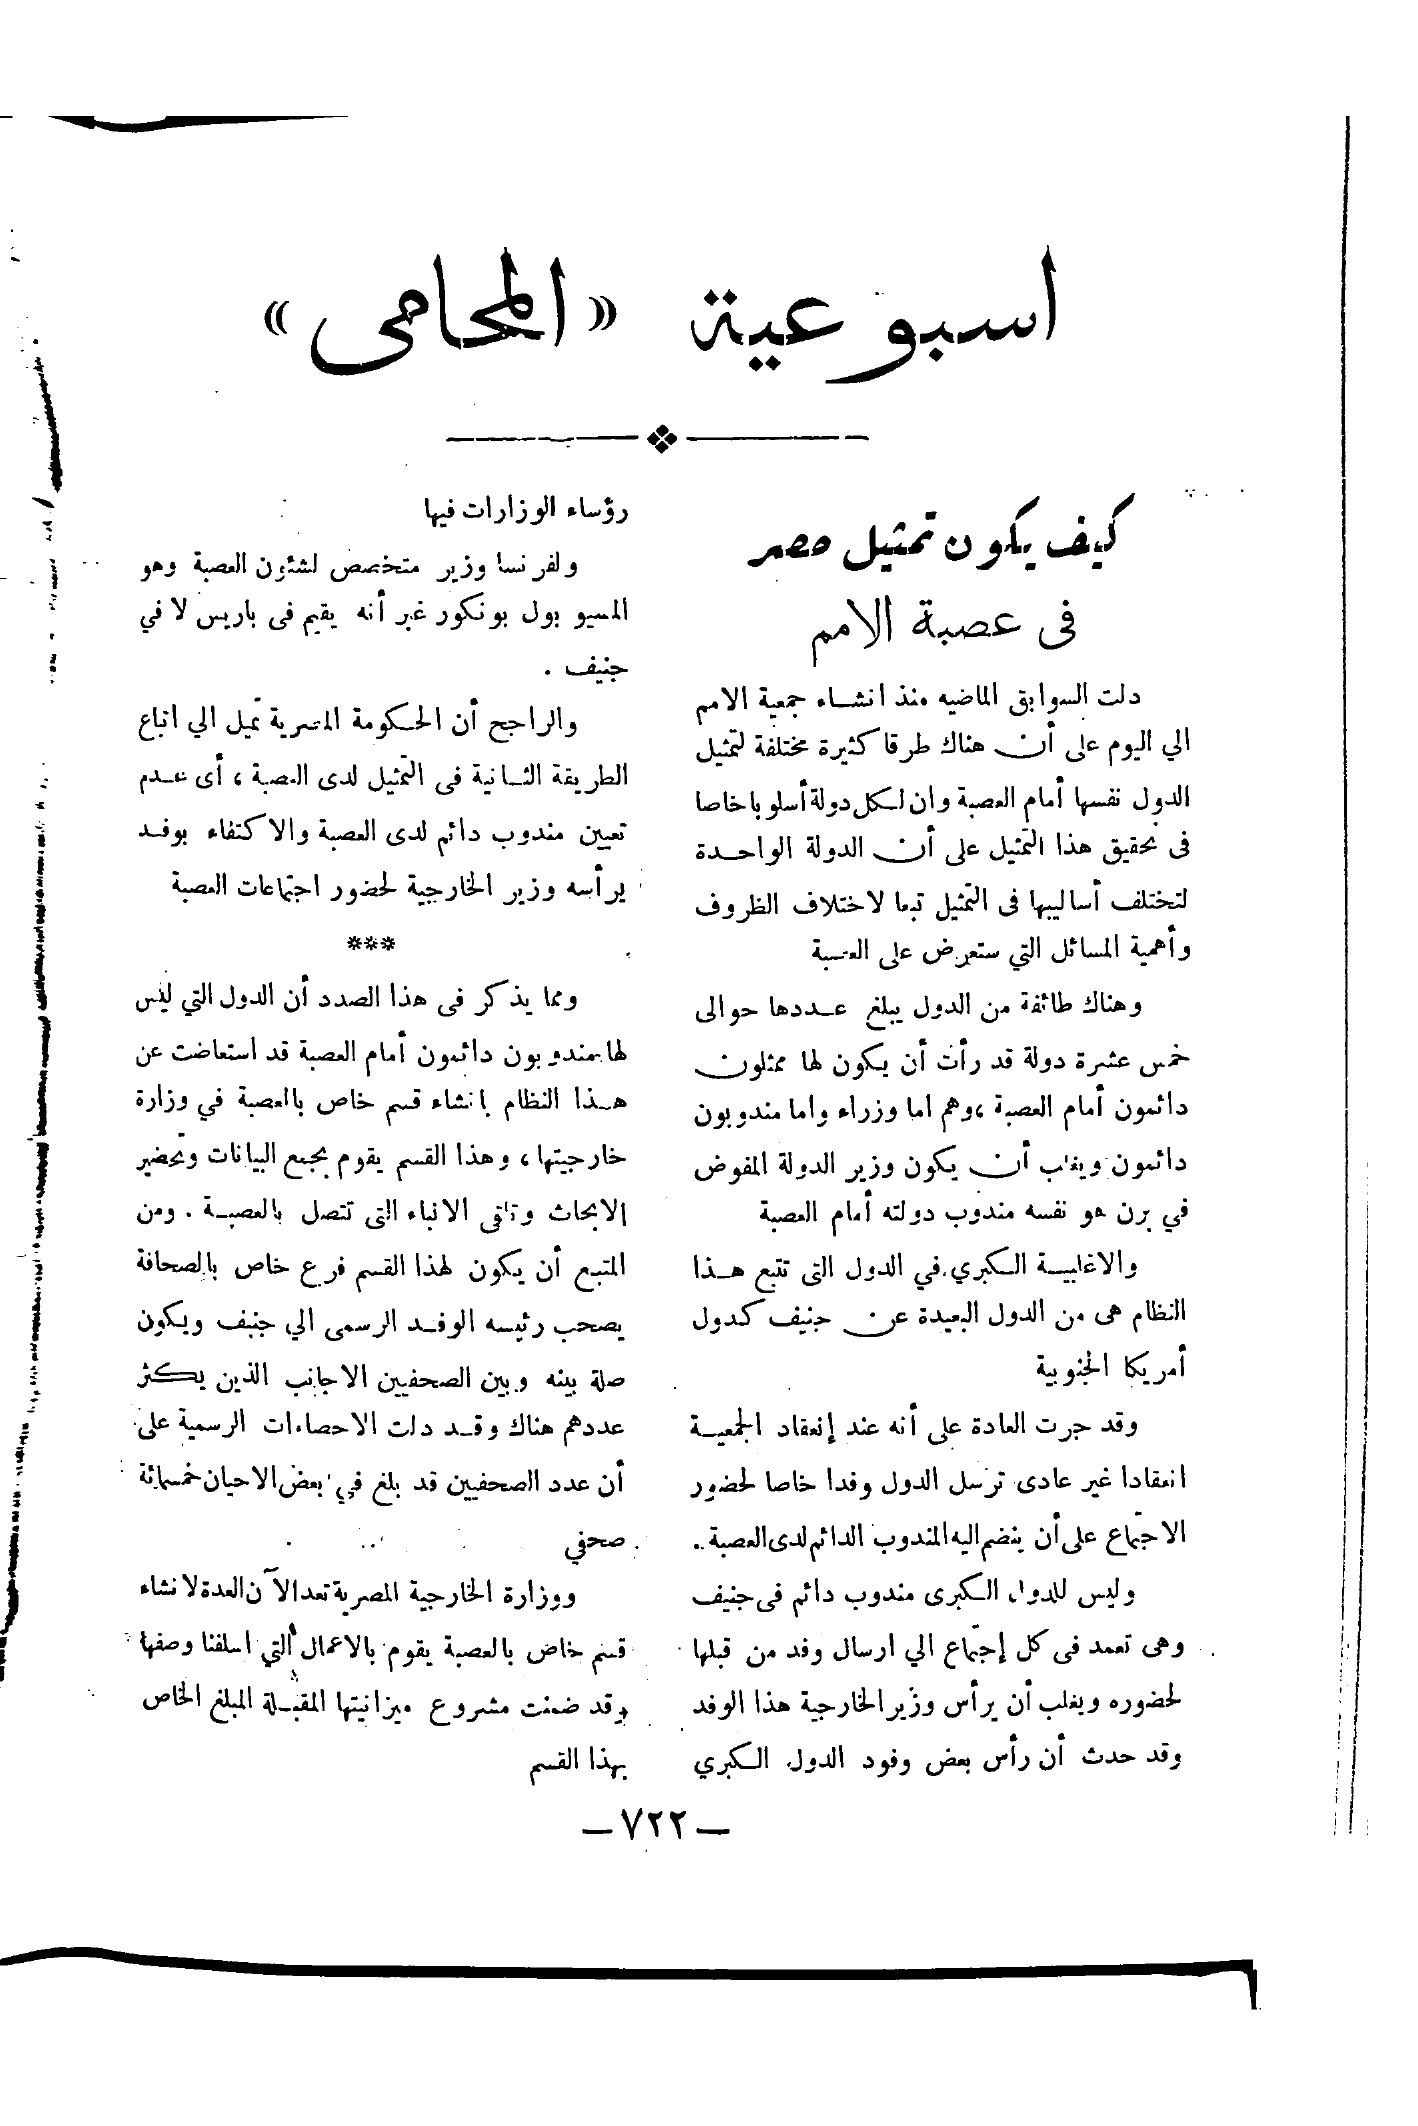 اسبوعية «المحامى»
كيف يكون تمثيل مصر
فى عصبة الامم
دلت السوابق الماضيه منذ انشاء جمعية الامم
الي اليوم على أن هناك طرقا كثيرة مختلفة لتمثيل
الدول نفسها أمام العصبة وان لكل دولة أسلوبا خاصا
فى تحقيق هذا التمثيل على أن الدولة الواحدة
لتختلف أساليبها فى التمثيل تبعا لاختلاف الظروف
وأهمية المسائل التي ستعرض على العصبة
وهناك طائفة من الدول يبلغ عددها حوالى
خمس عشرة دولة قد رأت أن يكون لها ممثلون
دائمون أمام العصبة ، وهم اما وزراء واما مندوبون
دائمون ويغلب أن يكون وزير الدولة المفوض
في برن هو نفسه مندوب دولته أمام العصبة
والاغلبية الكبري في الدول التى تتبع هذا
النظام هى من الدول البعيدة عن جنيف كدول
أمريكا الجنوبية
وقد جرت العادة على أنه عند إنعقاد الجمعية
انعقادا غير عادى ترسل الدول وفدا خاصا لحضور
الاجتماع على أن ينضم اليه المندوب الدائم لدى العصبة ..
وليس للدول الكبرى مندوب دائم فى جنيف
وهى تعمد فى كل إجتماع الي ارسال وفد من قبلها
لحضوره ويغلب أن يرأس وزير الخارجية هذا الوفد
وقد حدث أن رأس بعض وفود الدول الكبري
رؤساء الوزارات فيها
ولفرنسا وزير متخصص لشئون العصبة وهو
المسيو بول بونكور غير أنه يقيم فى باريس لا في
جنيف .
والراجح أن الحكومة المصرية تميل الي اتباع
الطريقة الثانية فى التمثيل لدى العصبة ، أى عدم
تعيين مندوب دائم لدى العصبة والاكتفاء بوفد
يرأسه وزير الخارجية لحضور اجتماعات العصبة
***
ومما يذكر فى هذا الصدد أن الدول التي ليس
لها مندوبون دائمون أمام العصبة قد استعاضت عن
هذا النظام بانشاء قسم خاص بالعصبة في وزارة
خارجيتها ، وهذا القسم يقوم بجمع البيانات وتحضير
الابحاث وتلقى الانباء التى تتصل بالعصبة . ومن
المتبع أن يكون لهذا القسم فرع خاص بالصحافة
يصحب رئيسه الوفد الرسمى الي جنيف ويكون
صلة بينه وبين الصحفيين الاجانب الذين يكثر
عددهم هناك وقد دلت الاحصاءات الرسمية على
أن عدد الصحفيين قد بلغ في بعض الاحيان خمسمائة
صحفي .
ووزارة الخارجية المصرية تعد الآن العدة لانشاء
قسم خاص بالعصبة يقوم بالاعمال التي اسلفنا وصفها
وقد ضمنت مشروع ميزانيتها المقبلة المبلغ الخاص
بهذا القسم
— ٧٢٢ —